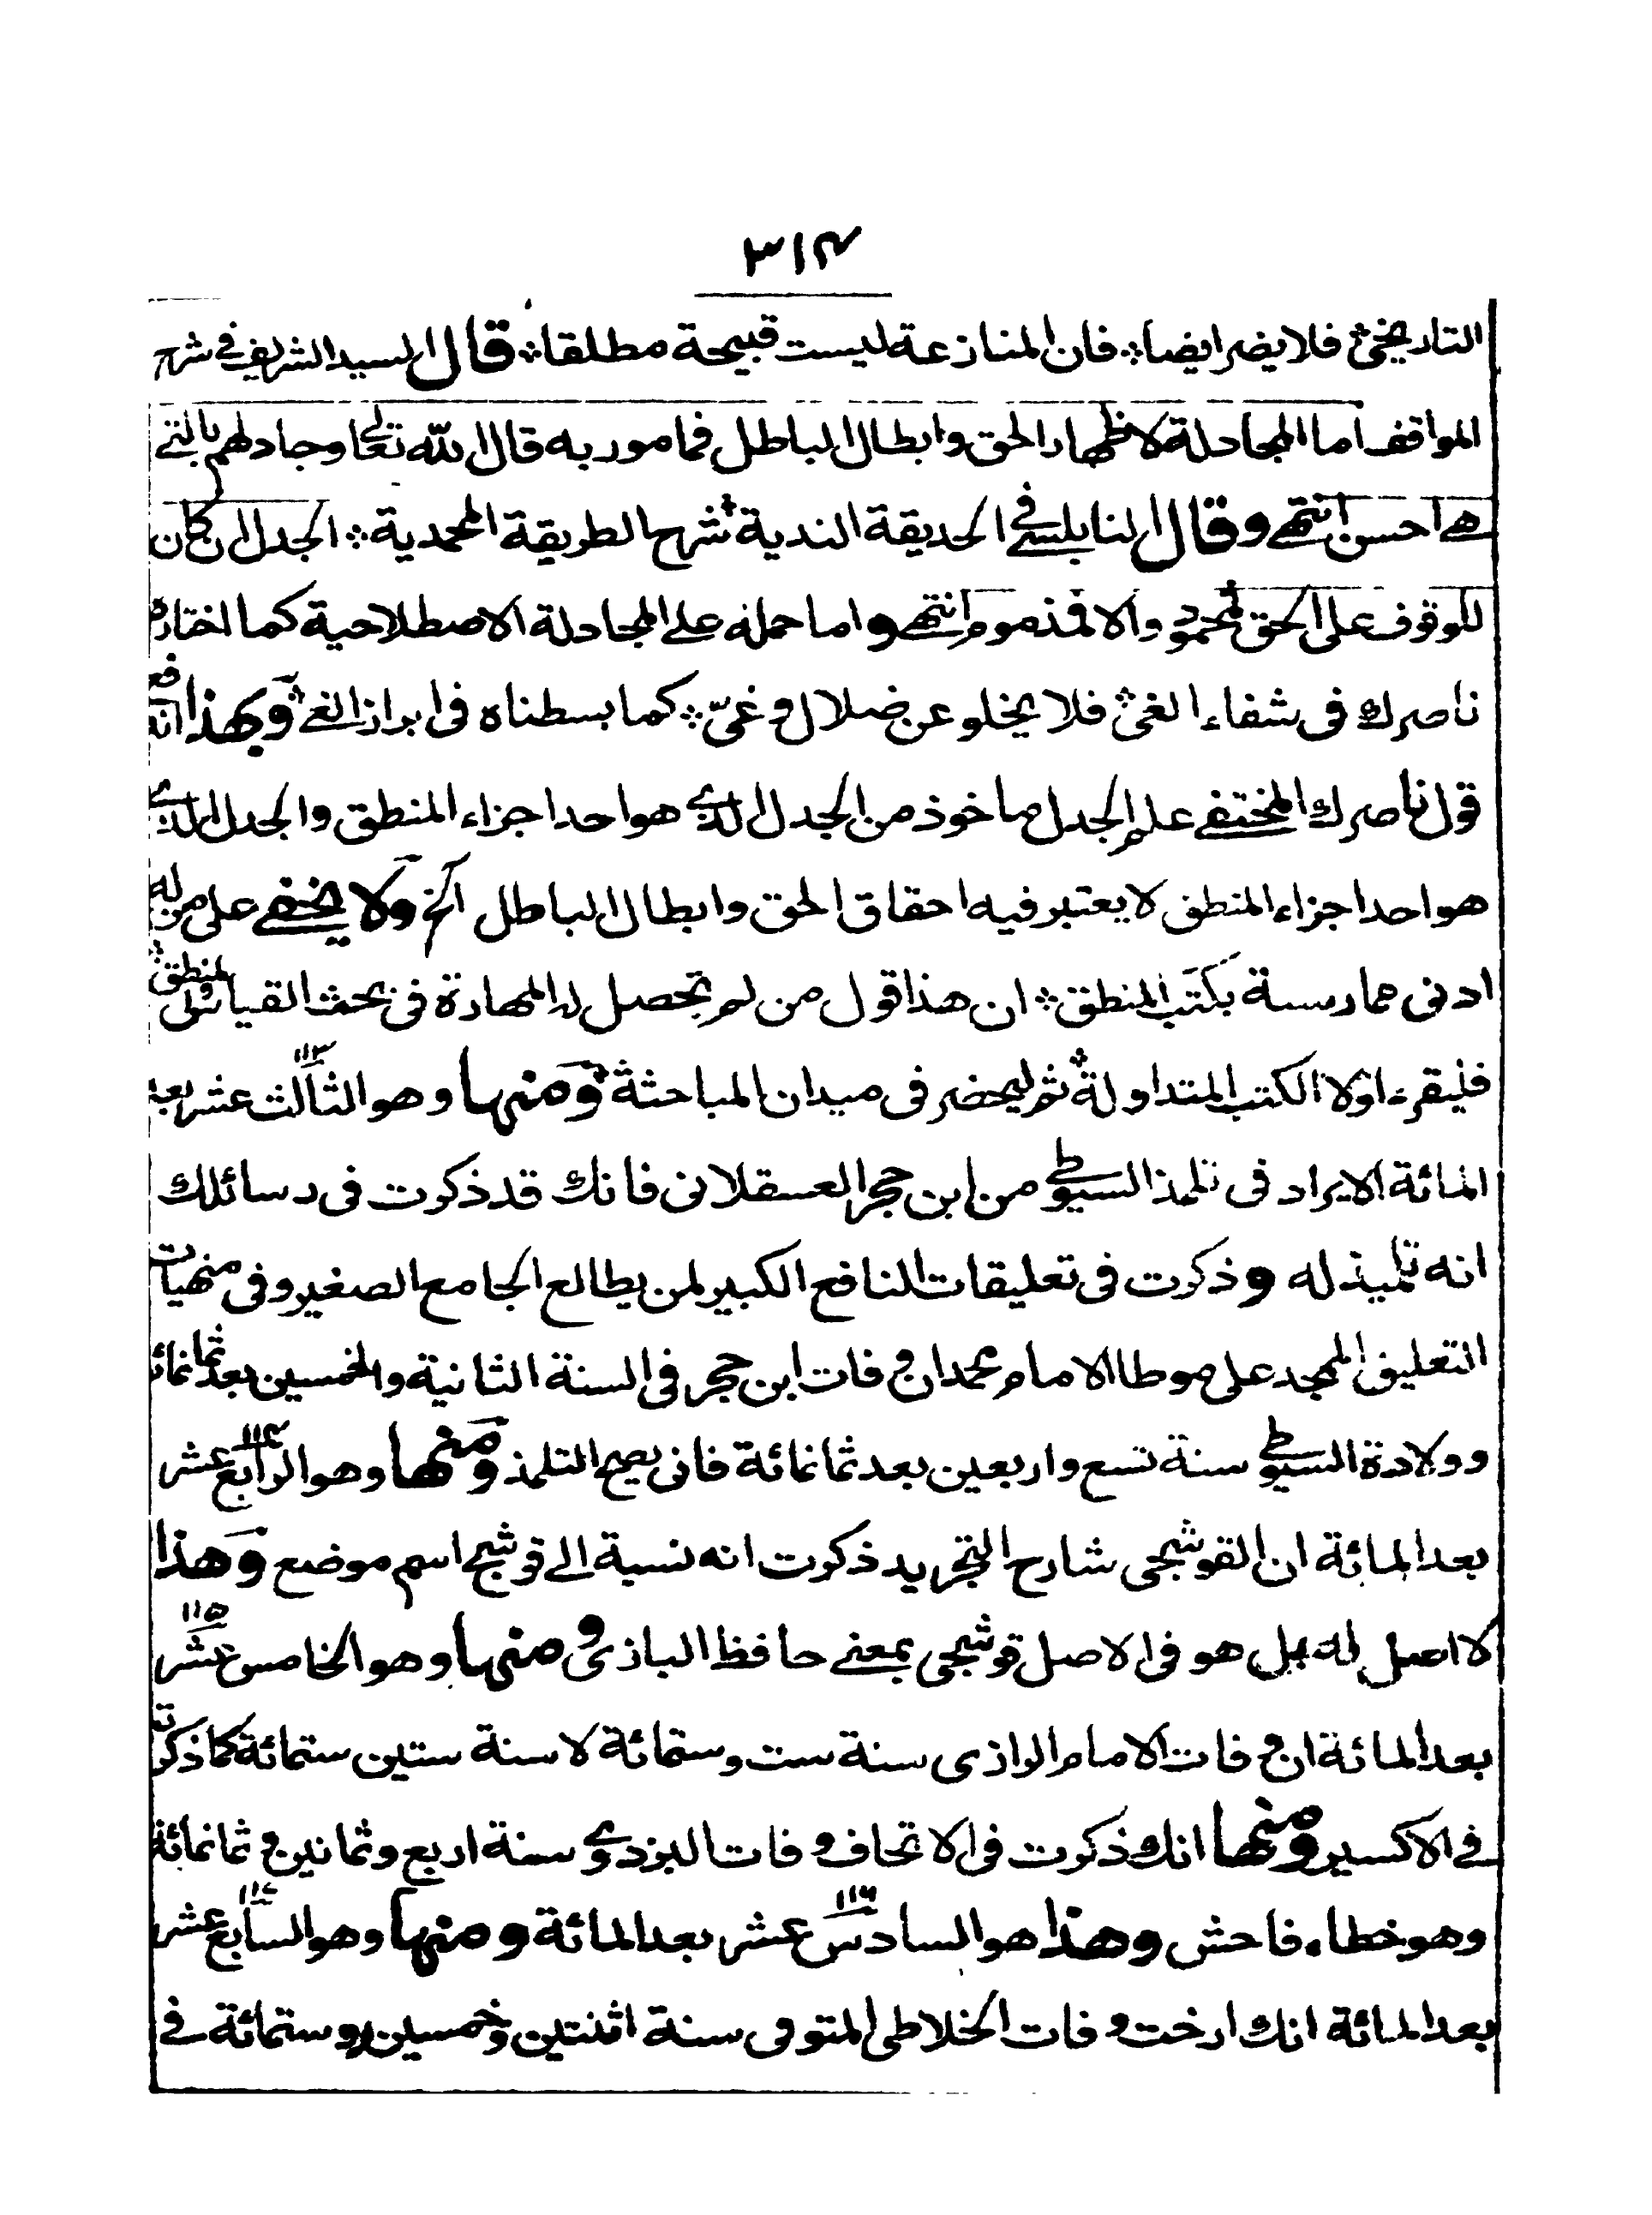 ٣١٤
التاريخي؞ فلا يضر ايضا؞ فان المنازعة ليست قبيحة مطلقا؞ قال السيد الشريف في شرح
المواقف اما المجادلة لاظهار الحق وابطال الباطل فمامور به قال الله تعالى وجادلهم بالتي
هي احسن انتهى وقال النابلسي في الحديقة الندية؞ شرح الطريقة المحمدية؞ الجدل ان كان
للوقوف على الحق فمحمود والا فمذموم انتهى واما حمله على المجادلة الاصطلاحية كما اختاره
ناصرك في شفاء الغي؞ فلا يخلو عن ضلال وغيّ؞ كما بسطناه في ابراز الغي؞ وبهذا اندفع
قول ناصرك المختفي علم الجدل ماخوذ من الجدل الذي هو احد اجزاء المنطق والجدل الذي
هو احد اجزاء المنطق لا يعتبر فيه احقاق الحق وابطال الباطل الخ ولا يخفى على من له
ادنى ممارسة بكتب المنطق؞ ان هذا قول من لم تحصل له المهارة في بحث القياس المنطقي؞
فليقرء اولا الكتب المتداولة؞ ثم ليحضر في ميدان المباحثة؞ ومنها وهو الثالث عشر ١١٣ بعد
المائة الايراد في تلمذ السيوطي من ابن حجر العسقلاني فانك قد ذكرت في رسائلك
انه تلميذ له وذكرت في تعليقات النافع الكبير لمن يطالع الجامع الصغير وفي منهيات
التعليق الممجد على موطا الامام محمد ان وفات ابن حجر في السنة الثانية والخمسين بعد ثمانمائة
وولادة السيوطي سنة تسع واربعين بعد ثمانمائة فانى يصح التلمذ ومنها وهو الرابع عشر ١١٤
بعد المائة ان القوشجي شارح التجريد ذكرت انه نسبة الى قوشج اسم موضع وهذا
لا اصل له بل هو في الاصل قوشجي بمعنى حافظ البازي ومنها وهو الخامس عشر ١١٥
بعد المائة ان وفات الامام الرازي سنة ست وستمائة لا سنة ستين ستمائة كما ذكرته
في الاكسير ومنها انك ذكرت في الاتحاف وفات البزدوي سنة اربع وثمانين و ثمانمائة
وهو خطاء فاحش وهذا هو السادس عشر ١١٦ بعد المائة ومنها وهو السابع عشر ١١٧
بعد المائة انك ارخت وفات الخلاطي المتوفى سنة اثنتين وخمسين وستمائة في